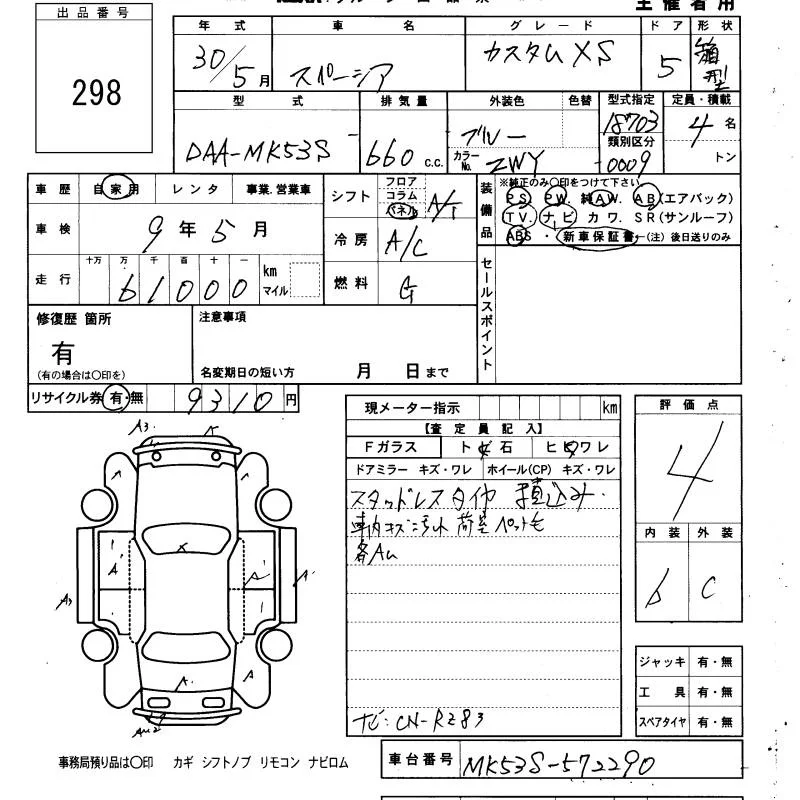 出品番号
298
主催者用
年式 車名 グレード ドア 形状
30/5月 スペーシア カスタムXS 5 箱型
型式 排気量 外装色 色替 型式指定 定員・積載
DAA-MK53S 660 c.c. ブルー 18703 4名
カラーNo. ZWY 類別区分 -0009 トン
車歴 自家用 レンタ 事業.営業車
車検 9年5月
走行 十万 万 千 百 十 一
61000 km マイル
シフト フロア コラム パネル A/T
冷房 A/C
燃料 G
装備品 ※純正のみ〇印をつけて下さい
PS PW. 純AW. AB(エアバック)
TV. ナビ カワ. SR(サンルーフ)
ABS ・ 新車保証書 (注) 後日送りのみ
セールスポイント
修復歴 箇所 注意事項
有
(有の場合は〇印を) 名変期日の短い方 月 日まで
リサイクル券 有・無 9310円
現メーター指示 km
【査定員記入】
Fガラス ト 石 ヒ ワレ
ドアミラー キズ・ワレ ホイール(CP) キズ・ワレ
スタッドレスタイヤ 積込み.
車内キズ汚れ 荷室ペット毛
各AU
ナビ:CN-RZ83
評価点
4
内装 外装
b C
A3 K
A
A
X
A' A' A'
A3
A. A
ジャッキ 有・無
工具 有・無
スペアタイヤ 有・無
事務局預り品は〇印 カギ シフトノブ リモコン ナビロム
車台番号 MK53S-572290